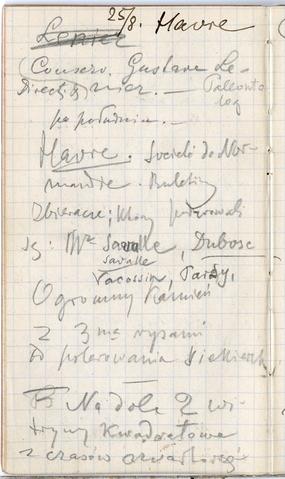 25/8. Havre
Lenier
Conserv. Gustave Le-
Direct. nier. — Paleonto
log
po południu. —
Havre. Societé de Nor-
mandie. Buletin
Zbieracze, którzy
są: Mr Savalle, Dubosc
Savalle
Vacossin,
Ogromny Kamień
z 3ma rysami
do polerowania siekierek
—
Na dole 2 wi-
tryny Kwadratowe
z czasów